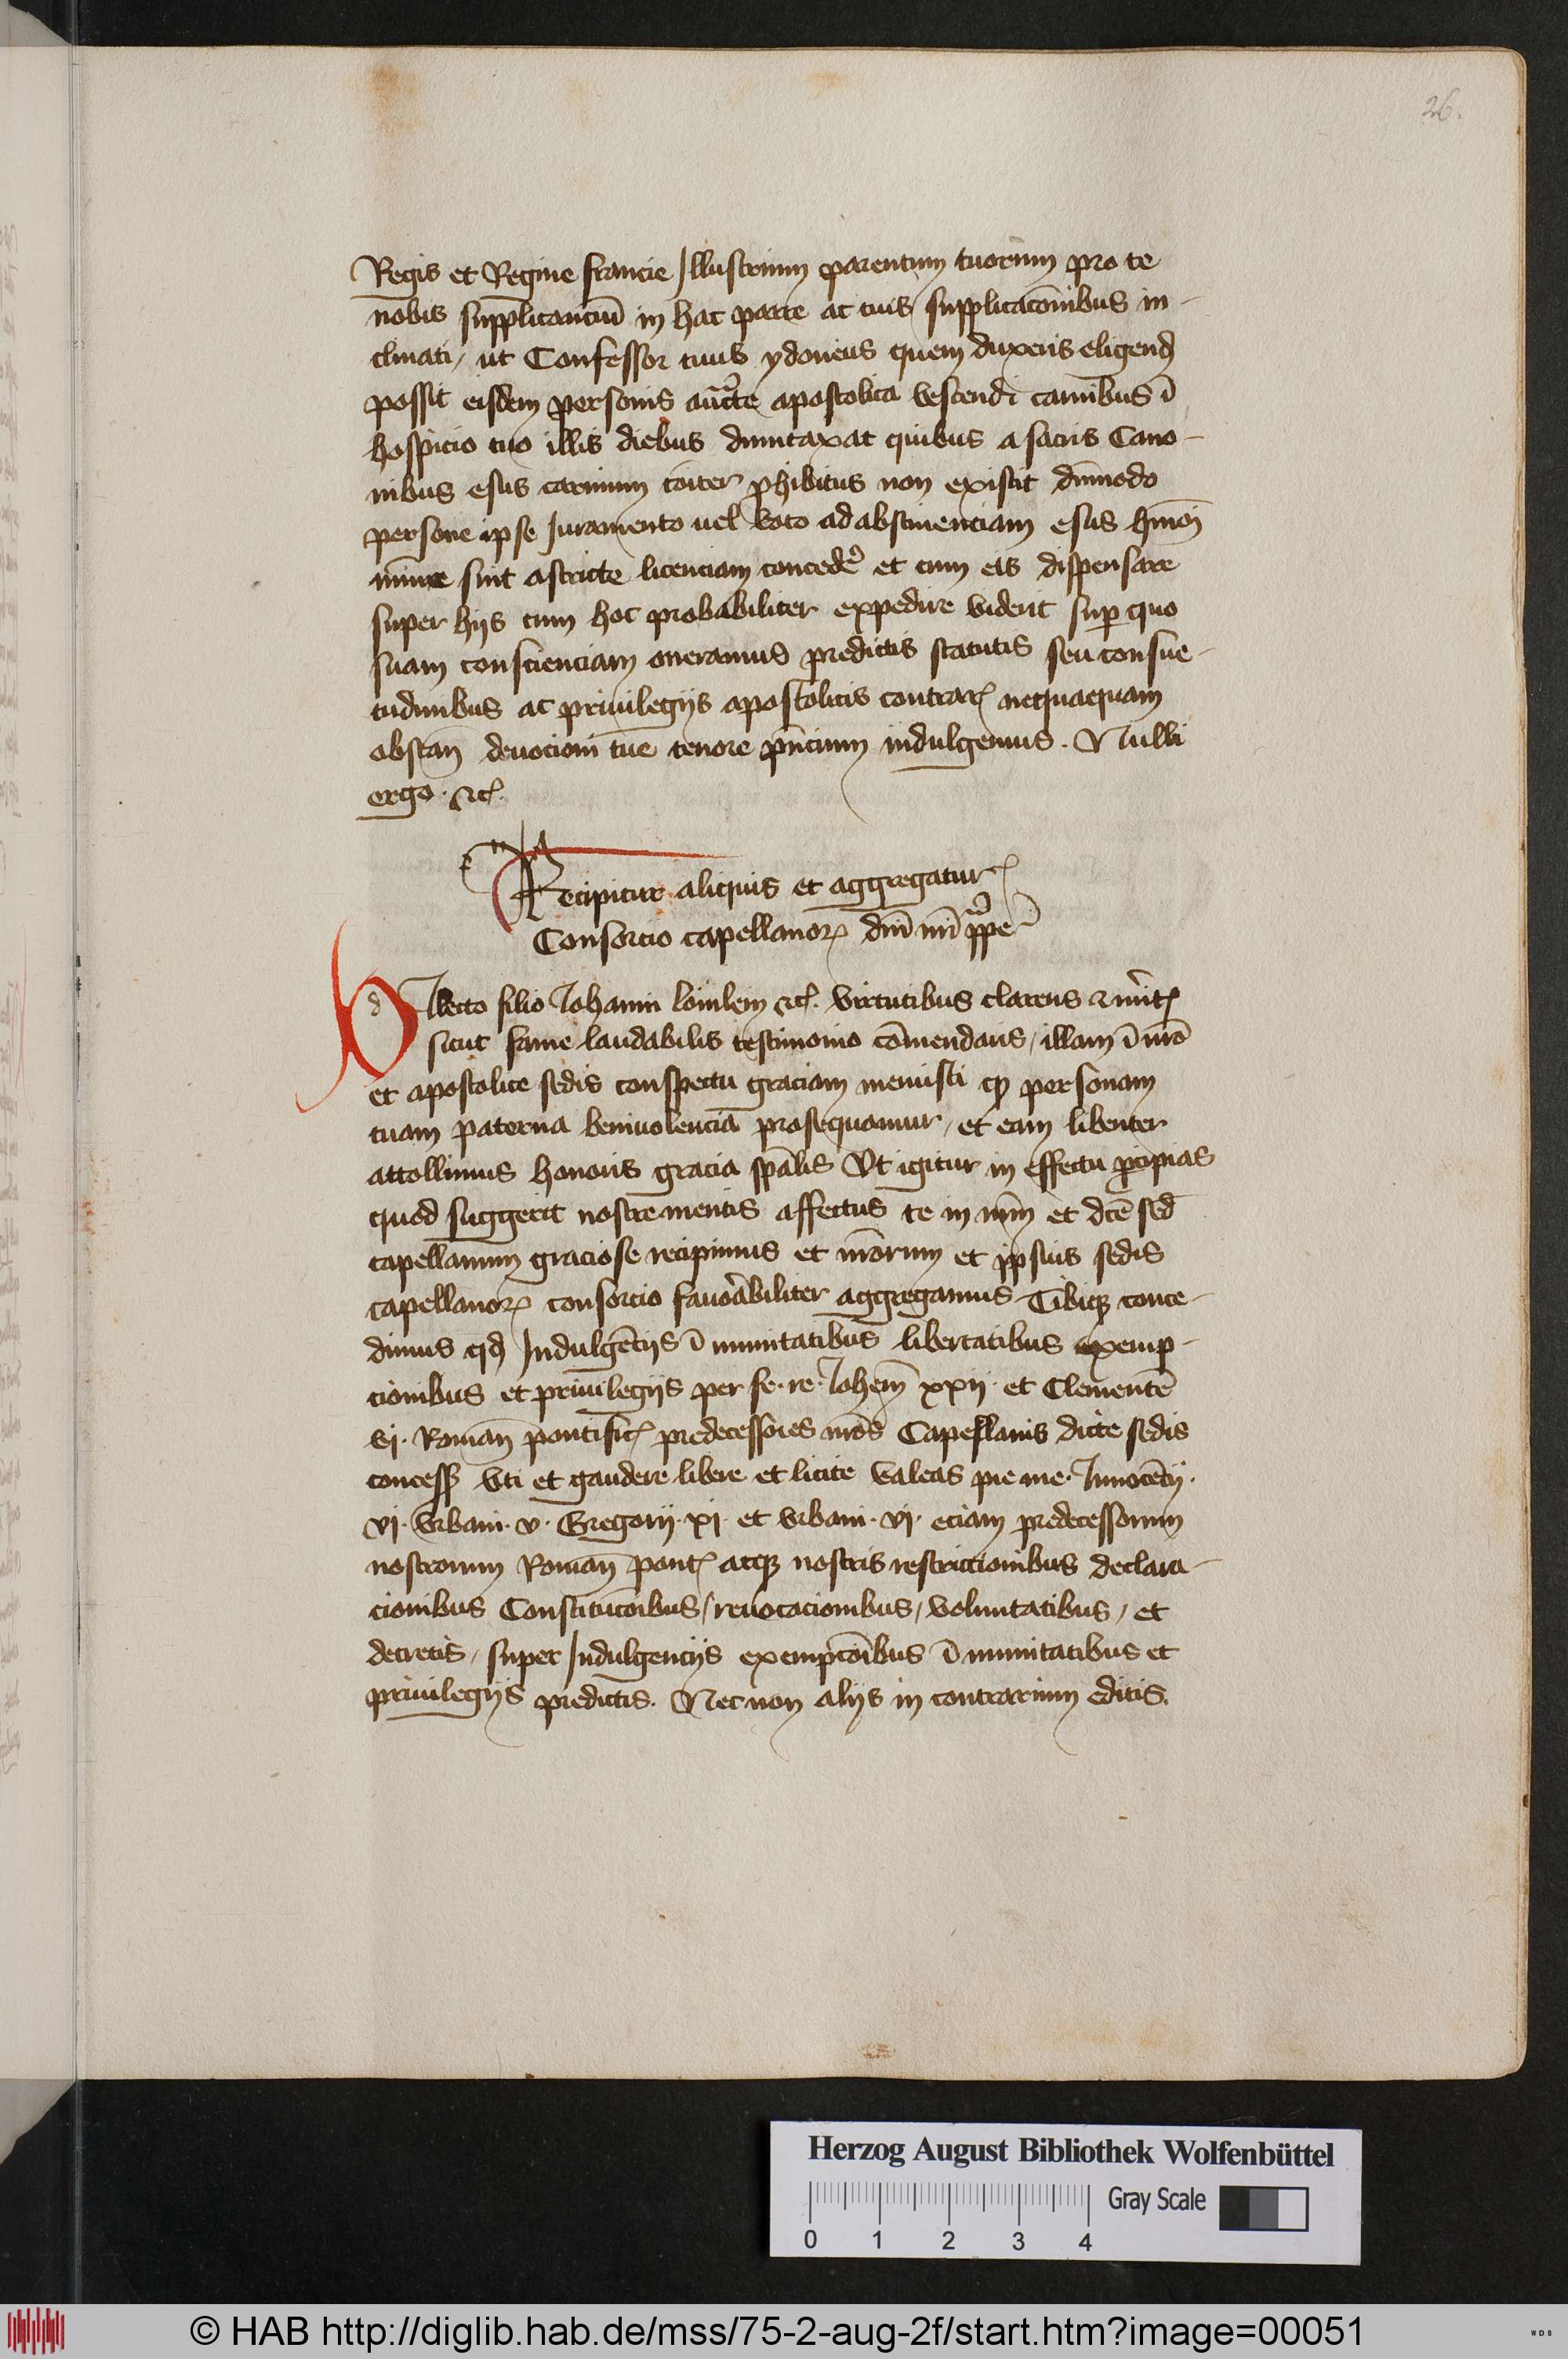 26.
Regis et Regine francie Illustrium parentum tuorum pro te
nobis supplicanciū in hac parte ac tuis supplicacōnibus in-
clinati, ut Confessor tuus ydoneus quem duxeris eligend
possit eisdem personis auctte apostolica vescendi carnibus ī
hospicio tuo illis diebus dumtaxat quibus a sacris Cano-
nibus esus carnium cōiter prohibitus non existit dūmodo
persone ipse Iuramento uel voto ad abstinenciam esus hmōi
minime sint astricte licenciam concedere et cum eis dispensare
super hijs cum hoc probabiliter expedire viderit super quo
suam conscienciam oneramus predictis statutis seu consue-
tudinibus ac priuilegijs apostolicis contrar nequaquam
obstan deuocioni tue tenore pñcium indulgemus. Nulli
ergo. etc.
Recipitur aliquis et aggregatur
Consorcio capellanor dñi nri ppe
d Ilecto filio Iohanni etc. virtutibus clarens et merit
sicut fame laudabilis testimonio cōmendaris, illam ī nrō
et apostolice sedis conspectu graciam meruisti qp personam
tuam paterna beniuolencia prosequamur, et eam libenter
attollimus honoris gracia spalis Vt igitur in effectu percipias
quod suggerit nostre mentis affectus te in nrm et dce sed
capellanum graciose recipimus et nrorum et ipsius sedis
capellanor consorcio fauorabiliter aggregamus Tibique conce-
dimus qd Indulgēcijs īmunitatibus libertatibus exemp-
cionibus et priuilegijs per fe. re. Iohem xxij. et Clementē
vj. Roman pontific predecessores nros Capellanis dicte sedis
concess vti et gaudere libere et licite valeas pie me. Innocēcij.
vj. Vrbani. v. Gregorij. xj. et Vrbani. vj. eciam predecessorum
nostrorum Roman pont atque nostris restriccionibus declara-
cionibus Constitucōibus, reuocacionibus, voluntatibus, et
decretis, super Indulgencijs exempcōibus īmunitatibus et
priuilegijs predictis. Nec non alijs in contrarium editis.
Herzog August Bibliothek Wolfenbüttel
Gray Scale
0 1 2 3 4
© HAB http://diglib.hab.de/mss/75-2-aug-2f/start.htm?image=00051
WDB